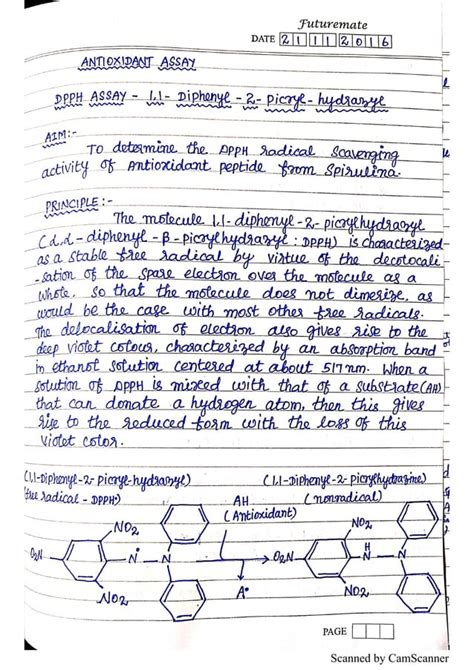 Futuremate
DATE 21 11 2016
ANTIOXIDANT ASSAY
DPPH ASSAY - 1.1- Diphenyl - 2 - picryl - hydrazyl
AIM:-
To determine the DPPH radical Scavenging
activity of Antioxidant peptide from Spirulina.
PRINCIPLE :-
The molecule 1.1-diphenyl-2-picrylhydrazyl
(d.d-diphenyl-β-picrylhydrazyl : DPPH) is characterized
as a stable free radical by virtue of the decolocali
-sation of the spare electron over the molecule as a
whole, so that the molecule does not dimerize, as
would be the case with most other free radicals.
The delocalisation of electron also gives rise to the
deep violet colour, characterized by an absorption band
in ethanol solution centered at about 517nm. When a
solution of DPPH is mixed with that of a substrate (AH)
that can donate a hydrogen atom, then this gives
rise to the reduced form with the loss of this
violet color.
(1.1-Diphenyl-2-picryl-hydrazyl) (1.1-Diphenyl-2-picrylhydrazine)
free radical - DPPH•) AH (nonradical)
(Antioxidant)
NO2 NO2
O2N N• N O2N H N N
A•
NO2 NO2
PAGE
Scanned by CamScanner